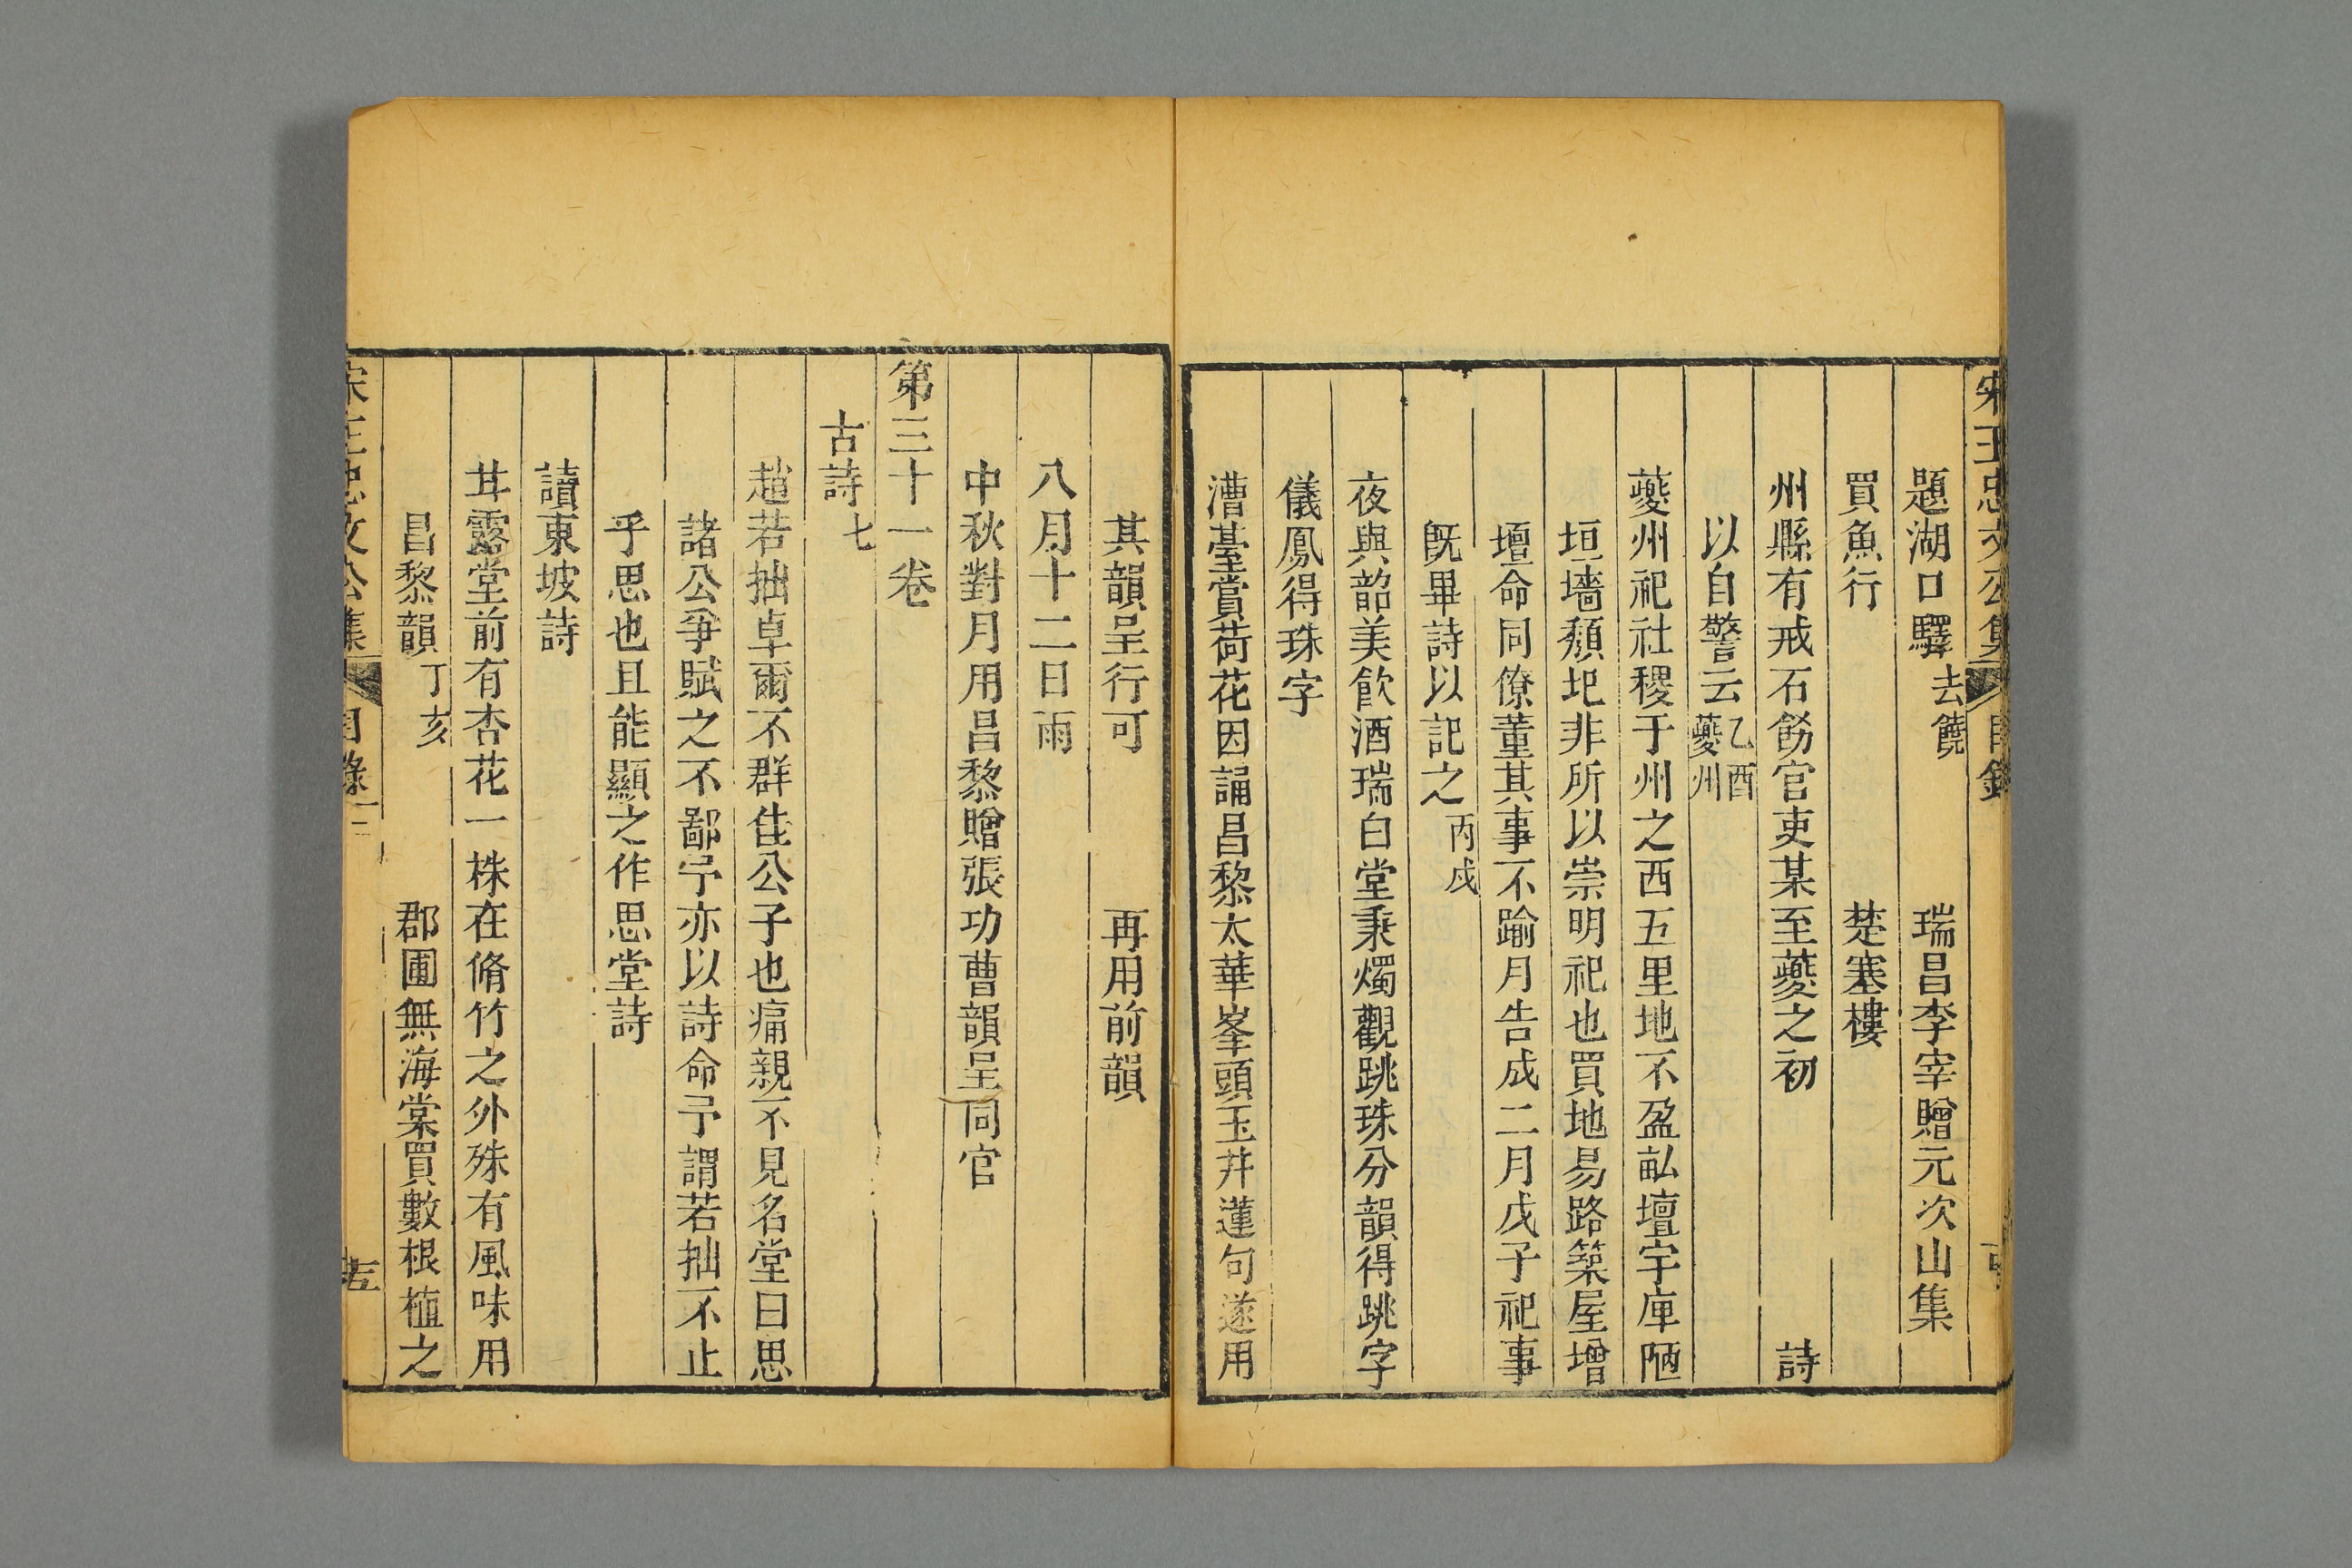 宋王忠文公集 目錄
題湖口驛 去饒 瑞昌李宰贈元次山集
買魚行 楚塞樓
州縣有戒石飭官吏某至夔之初 詩
以自警云 乙酉夔州
夔州祀社稷于州之西五里地不盈畝壇宇庳陋
垣墻頽圯非所以崇明祀也買地易路築屋增
壇命同僚董其事不踰月告成二月戊子祀事
旣畢詩以記之 丙戌
夜與韶美飮酒瑞白堂秉燭觀跳珠分韻得跳字
儀鳳得珠字
漕臺賞荷花因誦昌黎太華峯頭玉井蓮句遂用
其韻呈行可 再用前韻
八月十二日雨
中秋對月用昌黎贈張功曹韻呈同官
第三十一卷
古詩 七
趙若拙卓爾不群佳公子也痛親不見名堂曰思
諸公爭賦之不鄙予亦以詩命予謂若拙不止
乎思也且能顯之作思堂詩
讀東坡詩
甘露堂前有杏花一株在脩竹之外殊有風味用
昌黎韻 丁亥 郡圃無海棠買數根植之
宋王忠文公集 目錄 二 十五